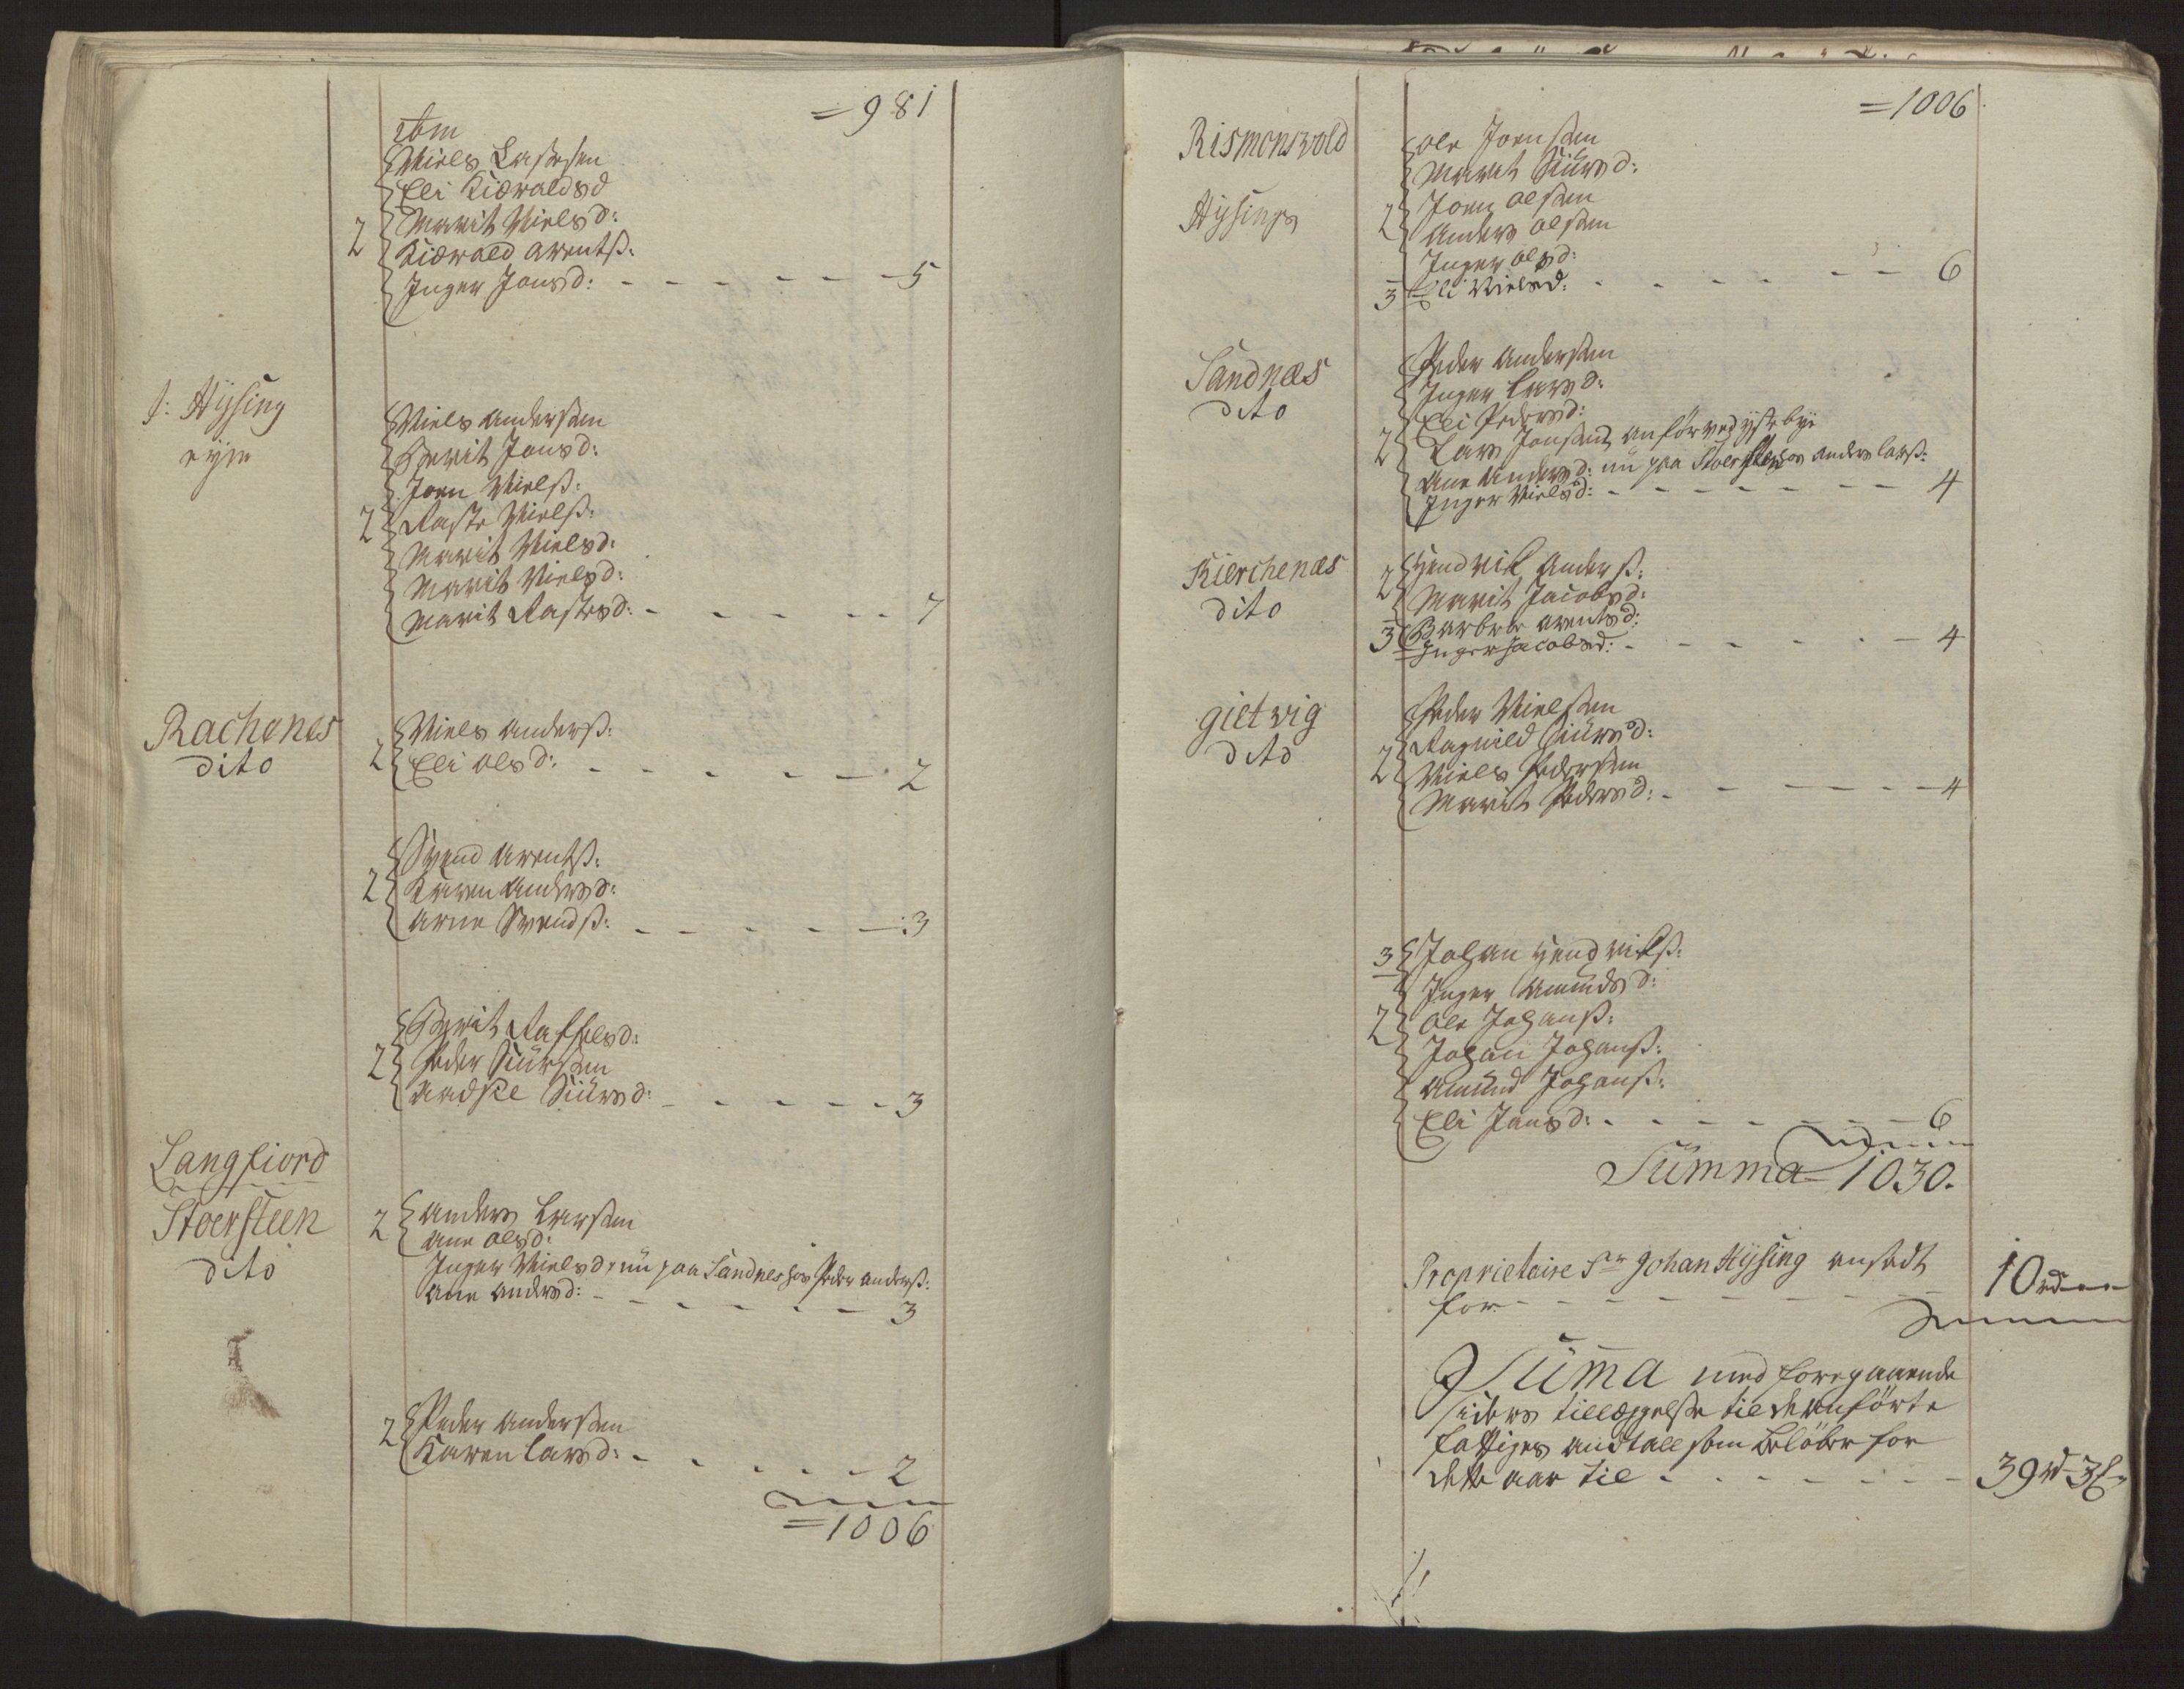 =981
Niels Lassesen
Eli Kiörvaldsd
2 Marit Nielsd:
Kiörvald Arentß:
Inger Jonsd: - - - - - - 5
S: Hysing
eyer
Niels Andersen
Berit Jonsd:
Joen Nielß:
2 Raste Nielß:
Marit Nielsd:
Marit Nielsd:
Marit Rastesd: - - - - - 7
Rachenes
dito
Niels Anderß:
2 Eli Olsd: - - - - - - 2
Svend Arentß:
2 Karen Andersd:
Arne Svendß: - - - - - :3
Berit Raffelsd:
2 Peder Siursen
Siursd: - - - - - 3
Langfiord
Stoersteen
dito
2 Anders Larsen
Ane Olsd:
Inger Nielsd: nu paa Sandnes hos Peder Anderß:
Ane Andersd: - - - - - - 3
2 Peder Andersen
Karen Larsd: - - - - - 2
=1006
=1006
Rismonsvold
Hysings
Ole Joensen
Marit Siursd:
2 Joen Olsen
Anders Olsen
Inger Olsd:
3 Eli Nielsd: - - - - - - 6
Sandnæs
dito
Peder Andersen
Inger Larsd:
Eli Pedersd:
2 Lars Jonsen, anför ved ystebye
Ane Andersd: nu paa Stoersteen hos Anders Larß:
Inger Nielsd: - - - - - - - 4
Kierchenæs
dito
2 Hendrik Anderß:
Marit Jacobsd:
3 Barbro Arentsd:
Inger Jacobsd: - - - - - - 4
gietvig
dito
Peder Nielsen
Ragnild Siursd:
2 Niels Pedersen
Marit Pedersd: - - - - - - 4
3 Johan Hendrikß:
Inger Amundsd:
2 Ole Johanß:
Johan Johanß:
Amund Johanß:
Eli Jonsd: - - - - - - - 6
Summa = 1030.
Proprietaire Sr Johan Hysing ansadt
for - - - - - - - - 10 rd
Suma med foregaaende
siders tillæggelse til de anförte
fattiges andtall som belöber for
dette aar til - - - - - - - 39 rd 3